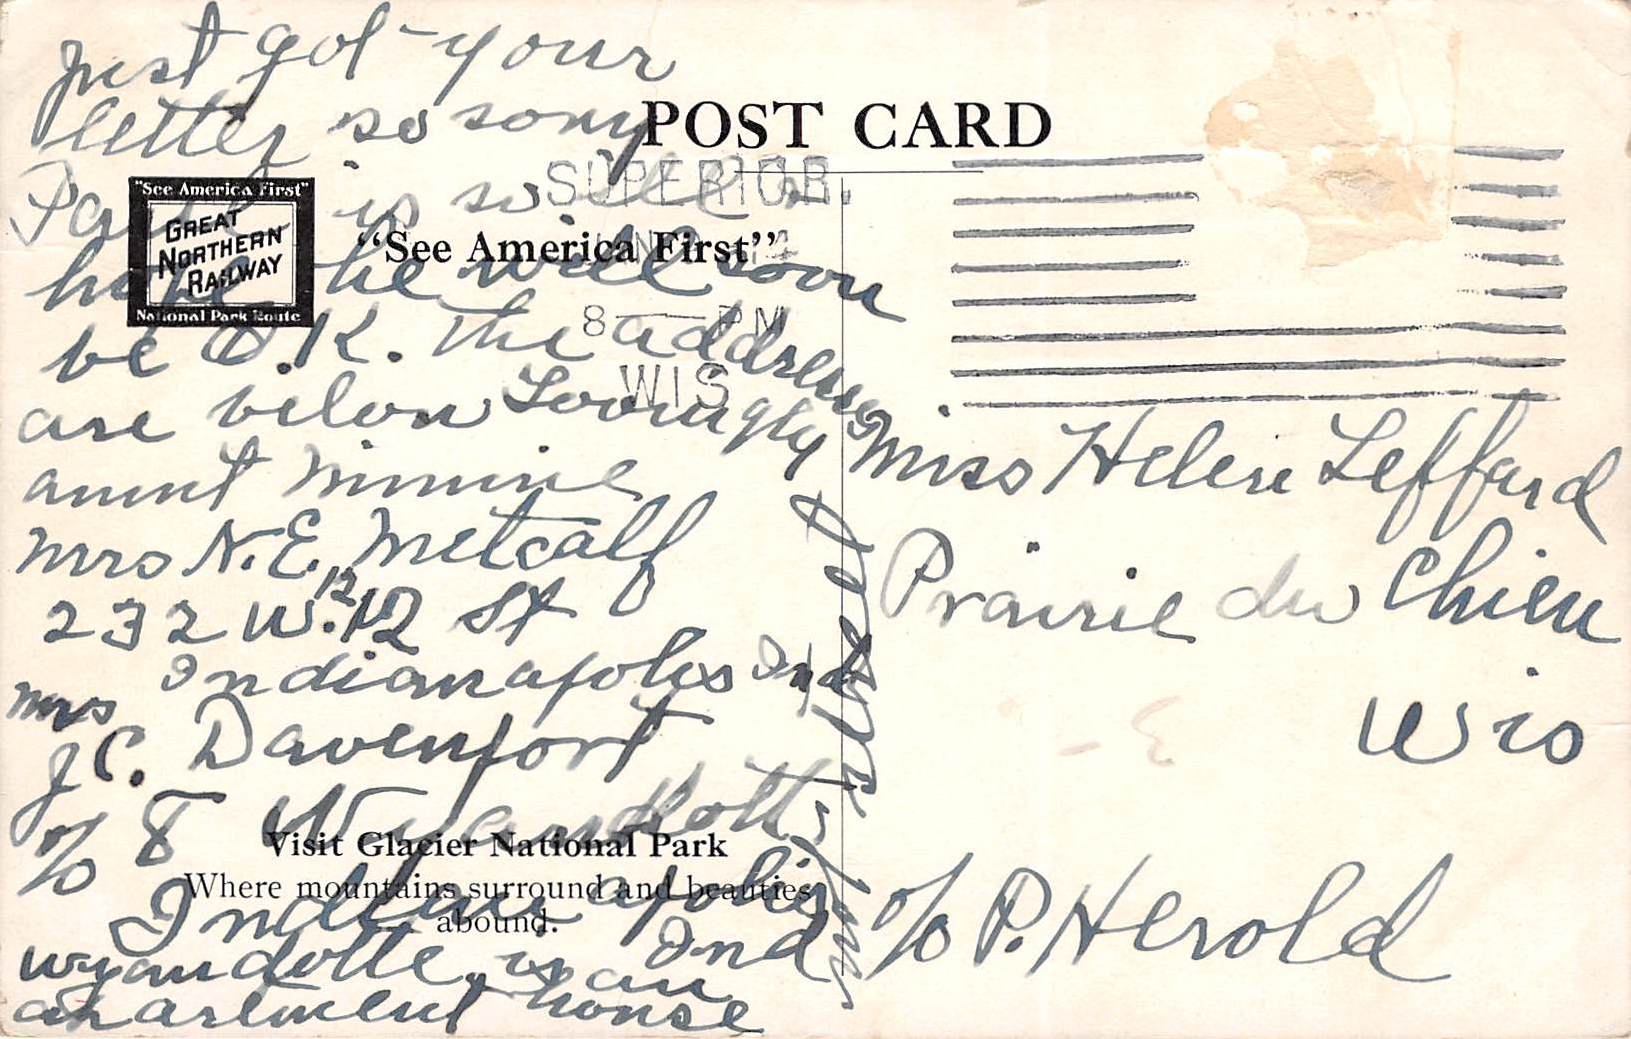 Just got your
letter so sorry
Paul is so ill
hope he will soon
be O.K. The addresses
are below Lovingly
aunt Minnie
Mrs N.E. Metcalf
232 W. 12 St
12
Indianapolis Ind
Mrs
J.C. Davenport
c/o 8 Wyandott
Indianapolis
Ind
Wyandotte is an
apartment house
POST CARD
"See America First"
GREAT
NORTHERN
RAILWAY
National Park Route
"See America First"
SUPERIOR.
8 — PM
WIS
Visit Glacier National Park
Where mountains surround and beauties
abound.
Miss Helen Leffard
Prairie du Chien
Wis
c/o P. Herold